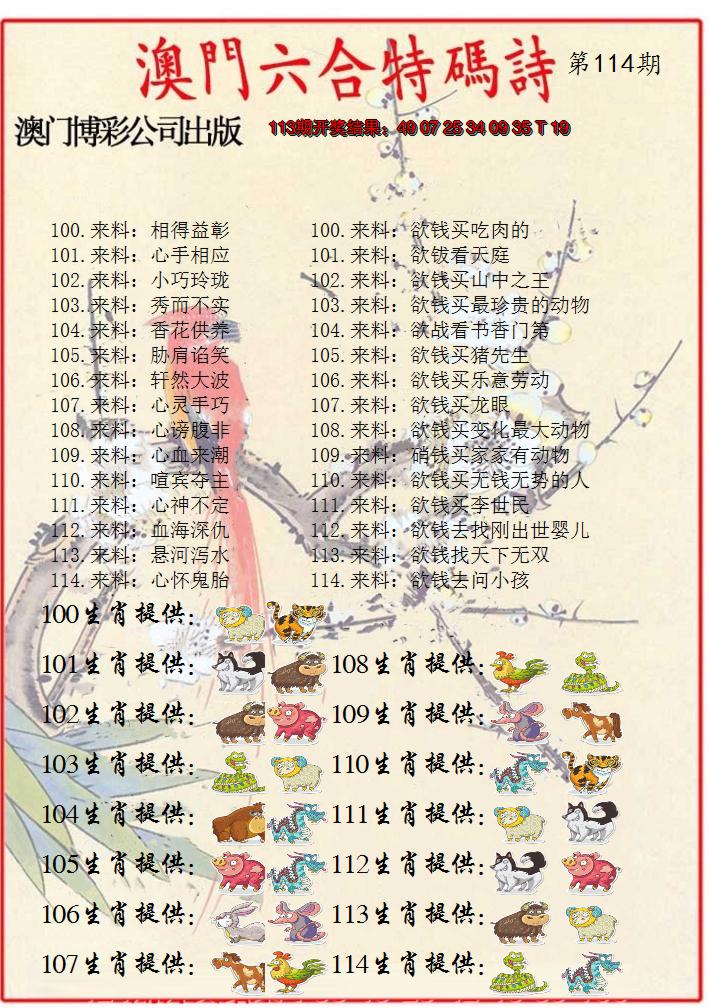 澳門六合特碼詩 第114期
澳门博彩公司出版 113期开奖结果：49 07 25 34 09 35 T 19
100.来料：相得益彰 100.来料：欲钱买吃肉的
101.来料：心手相应 101.来料：欲钹看天庭
102.来料：小巧玲珑 102.来料：欲钱买山中之王
103.来料：秀而不实 103.来料：欲钱买最珍贵的动物
104.来料：香花供养 104.来料：欲战看书香门第
105.来料：胁肩谄笑 105.来料：欲钱买猪先生
106.来料：轩然大波 106.来料：欲钱买乐意劳动
107.来料：心灵手巧 107.来料：欲钱买龙眼
108.来料：心谤腹非 108.来料：欲钱买变化最大动物
109.来料：心血来潮 109.来料：硝钱买家家有动物
110.来料：喧宾夺主 110.来料：欲钱买无钱无势的人
111.来料：心神不定 111.来料：欲钱买李世民
112.来料：血海深仇 112.来料：欲钱去找刚出世婴儿
113.来料：悬河泻水 113.来料：欲钱找天下无双
114.来料：心怀鬼胎 114.来料：欲钱去问小孩
100生肖提供：
101生肖提供： 108生肖提供：
102生肖提供： 109生肖提供：
103生肖提供： 110生肖提供：
104生肖提供： 111生肖提供：
105生肖提供： 112生肖提供：
106生肖提供： 113生肖提供：
107生肖提供： 114生肖提供：